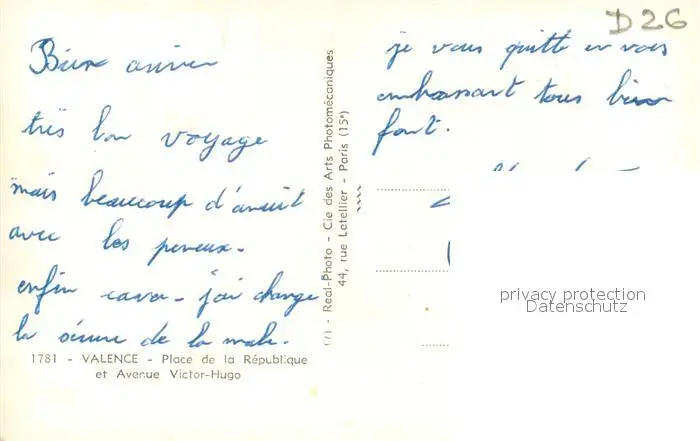 D26
Bien arriver
très bon voyage
mais beaucoup d'ennuit
avec les pneueux.
enfin cava - j'ai change
la de la
1781 - VALENCE - Place de la République
et Avenue Victor-Hugo
(7) - Real-Photo - Cie des Arts Photomécaniques
44, rue Letellier - Paris (15e)
je vous quitte en vous
embrassant tous bien
fort.
privacy protection
Datenschutz